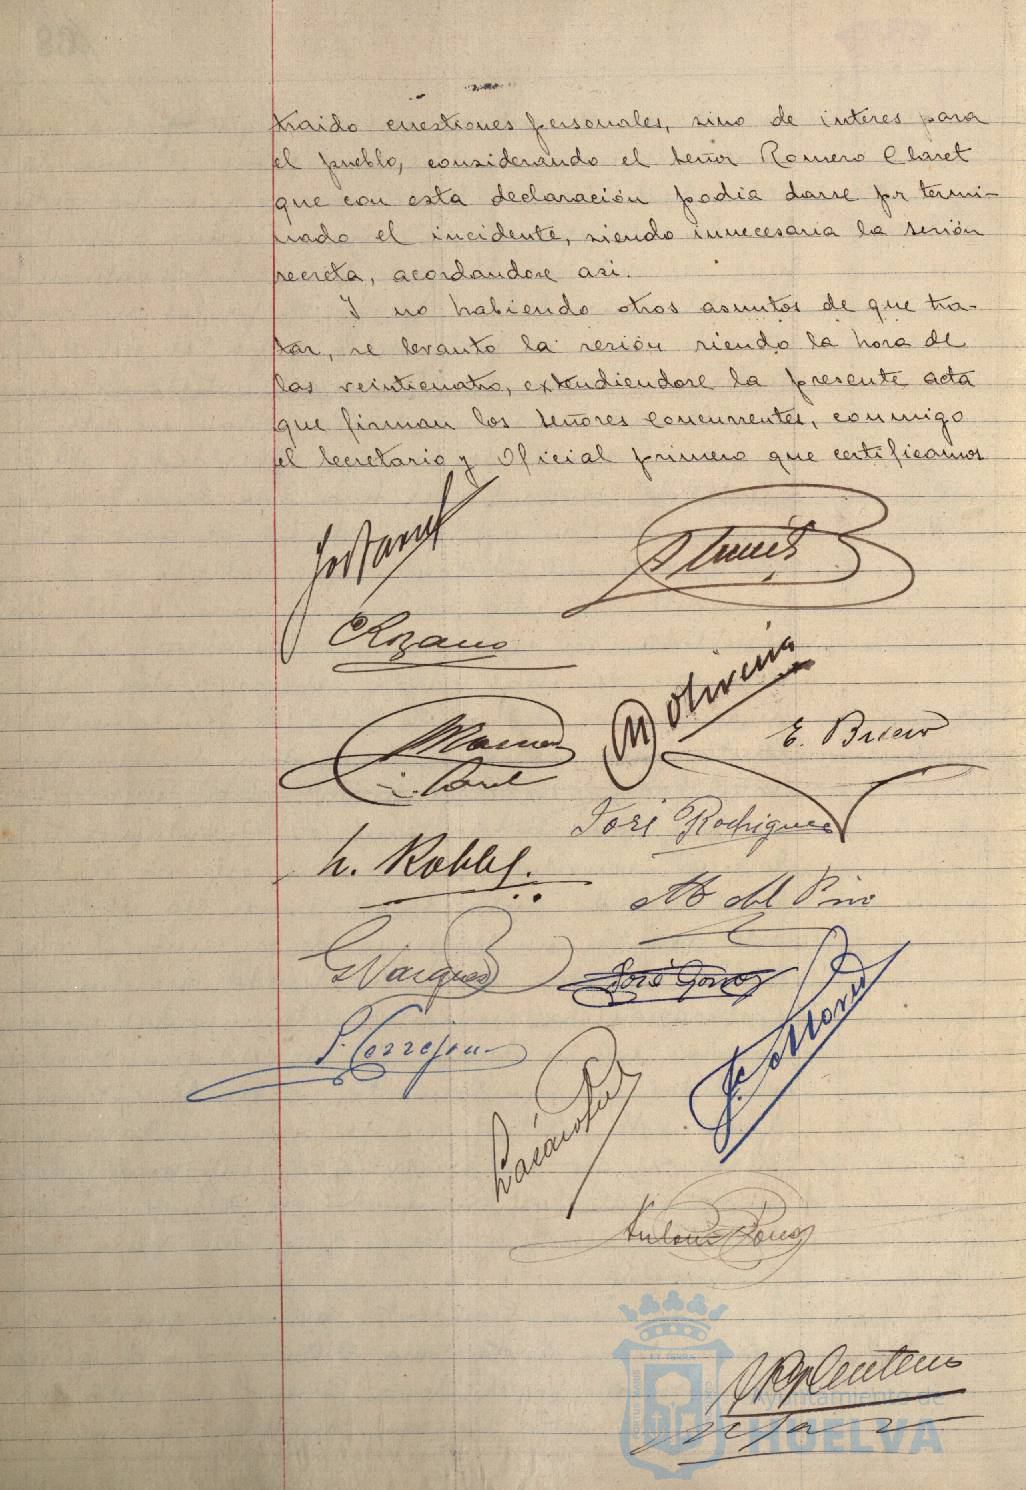 traido cuestiones personales, sino de interes para
el pueblo, considerando el señor Romero Claret
que con esta declaración podia darse pr termi-
nado el incidente, siendo innecesaria la sesión
secreta, acordandose asi.
Y no habiendo otros asuntos de que tra-
tar, se levantó la sesión siendo la hora de
las veinticuatro, extendiendose la presente acta
que firman los señores concurrentes, conmigo
el Secretario y Oficial primero que certificamos
Lozano
Oliveira
E. Brieva
José Rodriguez
L. Robles.
M del Pino
G Vazquez
José
P. Terrejon
Antonio Ponce
Centeno
Ayuntamiento de
HUELVA